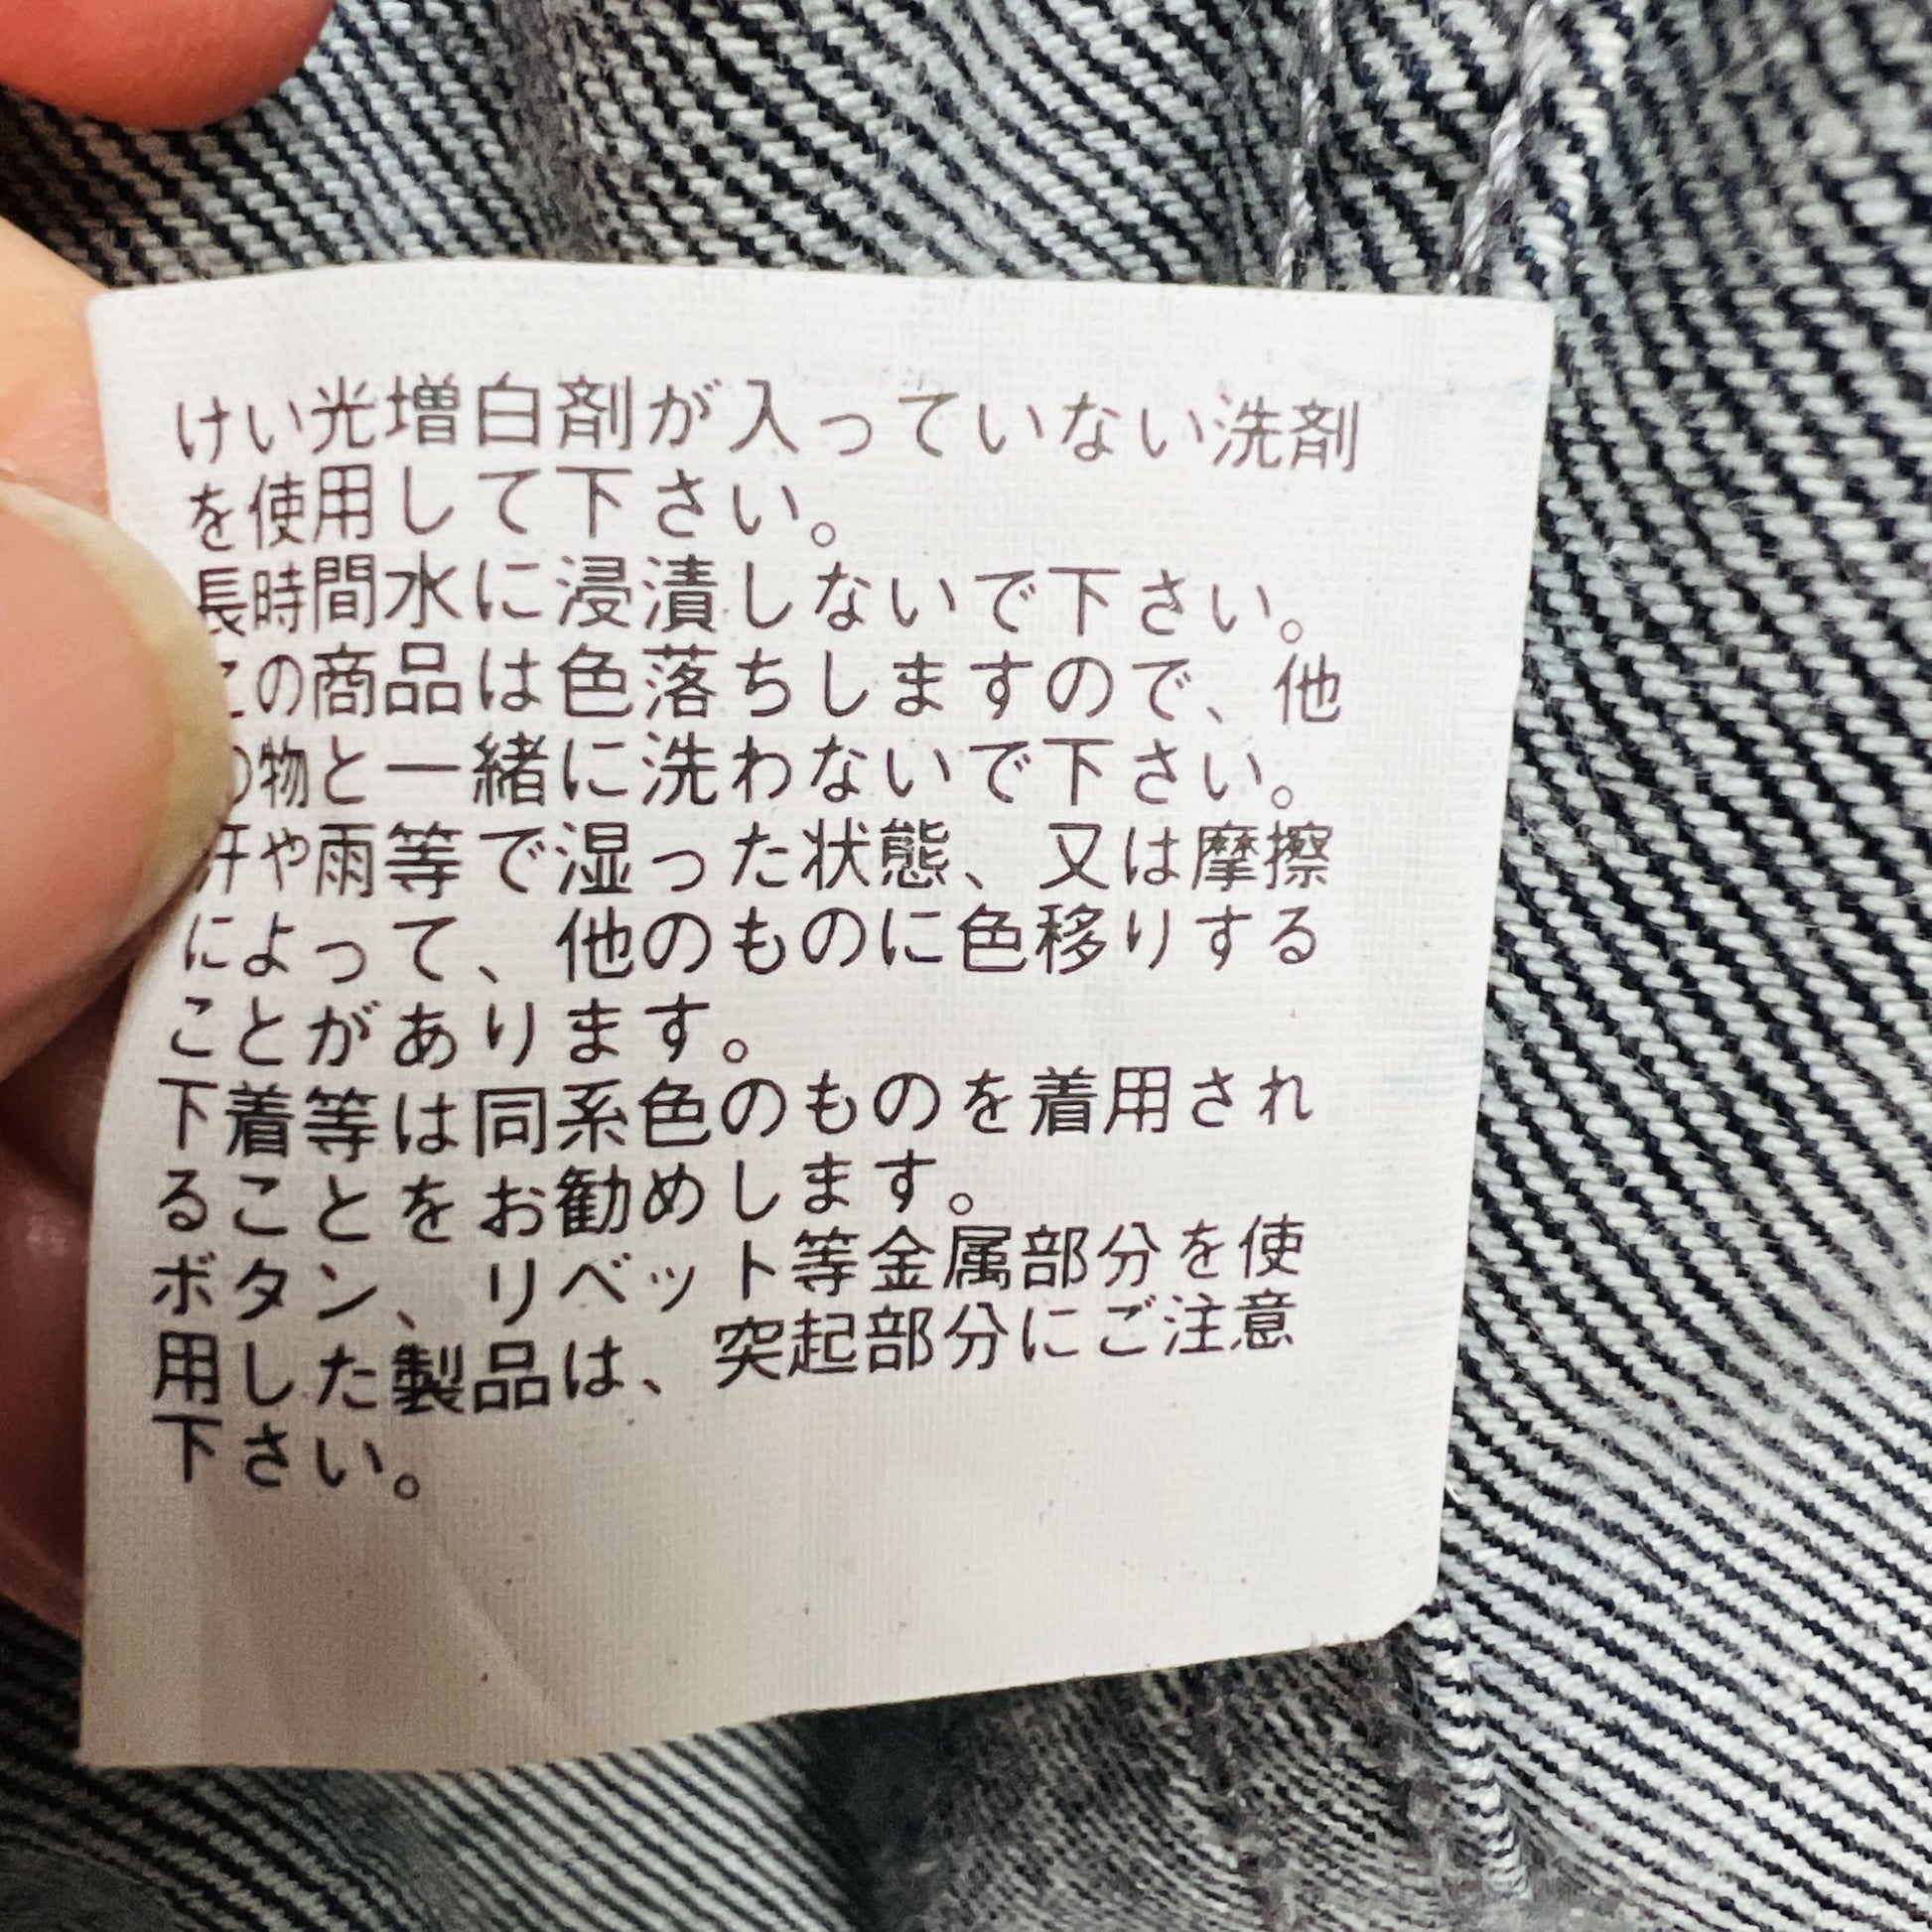 けい光増白剤が入っていない洗剤
を使用して下さい。
長時間水に浸漬しないで下さい。
この商品は色落ちしますので、他
の物と一緒に洗わないで下さい。
汗や雨等で湿った状態、又は摩擦
によって、他のものに色移りする
ことがあります。
下着等は同系色のものを着用され
ることをお勧めします。
ボタン、リベット等金属部分を使
用した製品は、突起部分にご注意
下さい。